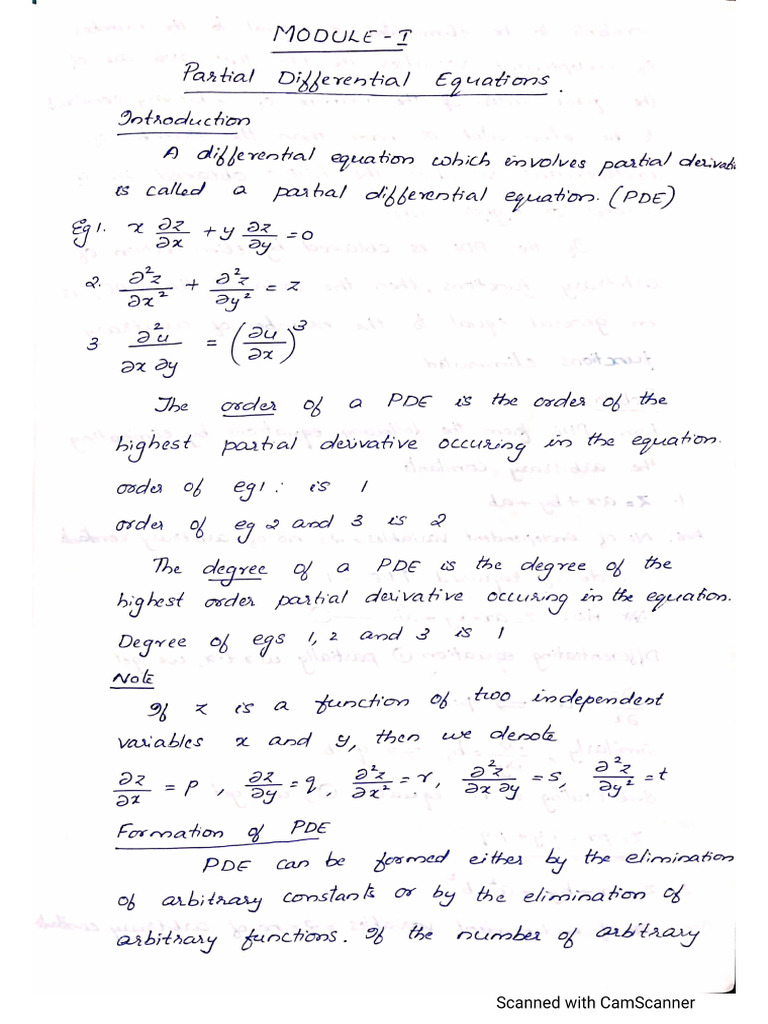 MODULE - I
Partial Differential Equations.
Introduction
A differential equation which involves partial derivati
is called a partial differential equation. (PDE)
Eg 1. x ∂z/∂x + y ∂z/∂y = 0
2. ∂²z/∂x² + ∂²z/∂y² = z
3 ∂²u/∂x ∂y = (∂u/∂x)³
The order of a PDE is the order of the
highest partial derivative occuring in the equation.
order of eg1: is 1
order of eg 2 and 3 is 2
The degree of a PDE is the degree of the
highest order partial derivative occuring in the equation.
Degree of egs 1, 2 and 3 is 1
Note
If z is a function of two independent
variables x and y, then we denote
∂z/∂x = p, ∂z/∂y = q, ∂²z/∂x² = r, ∂²z/∂x ∂y = s, ∂²z/∂y² = t
Formation of PDE
PDE can be formed either by the elimination
of arbitrary constants or by the elimination of
arbitrary functions. If the number of arbitrary
Scanned with CamScanner